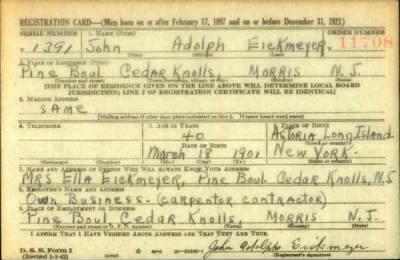 REGISTRATION CARD—(Men born on or after February 17, 1897 and on or before December 31, 1921)
SERIAL NUMBER 1. NAME (Print) ORDER NUMBER
T 1391 John Adolph Eickmeyer 11,08
(First) (Middle) (Last)
2. PLACE OF RESIDENCE (Print)
Pine Boul. Cedar Knolls, Morris N.J.
(Number and street) (Town, township, village, or city) (County) (State)
[THE PLACE OF RESIDENCE GIVEN ON THE LINE ABOVE WILL DETERMINE LOCAL BOARD
JURISDICTION; LINE 2 OF REGISTRATION CERTIFICATE WILL BE IDENTICAL]
3. MAILING ADDRESS
SAME
[Mailing address if other than place indicated on line 2. If same insert word same]
4. TELEPHONE 5. AGE IN YEARS 6. PLACE OF BIRTH
40 Astoria, Long Island
DATE OF BIRTH (Town or county)
March 18 1901 New York
(Exchange) (Number) (Mo.) (Day) (Yr.) (State or country)
7. NAME AND ADDRESS OF PERSON WHO WILL ALWAYS KNOW YOUR ADDRESS
Mrs Ella Eickmeyer, Pine Boul. Cedar Knolls, N.J
8. EMPLOYER'S NAME AND ADDRESS
Own Business- (carpenter contractor)
9. PLACE OF EMPLOYMENT OR BUSINESS
Pine Boul. Cedar Knolls, Morris N.J.
(Number and street or R. F. D. number) (Town) (County) (State)
I AFFIRM THAT I HAVE VERIFIED ABOVE ANSWERS AND THAT THEY ARE TRUE.
D. S. S. Form 1
(Revised 1-1-42) (over) GPO John Adolph Eickmeyer
(Registrant's signature)